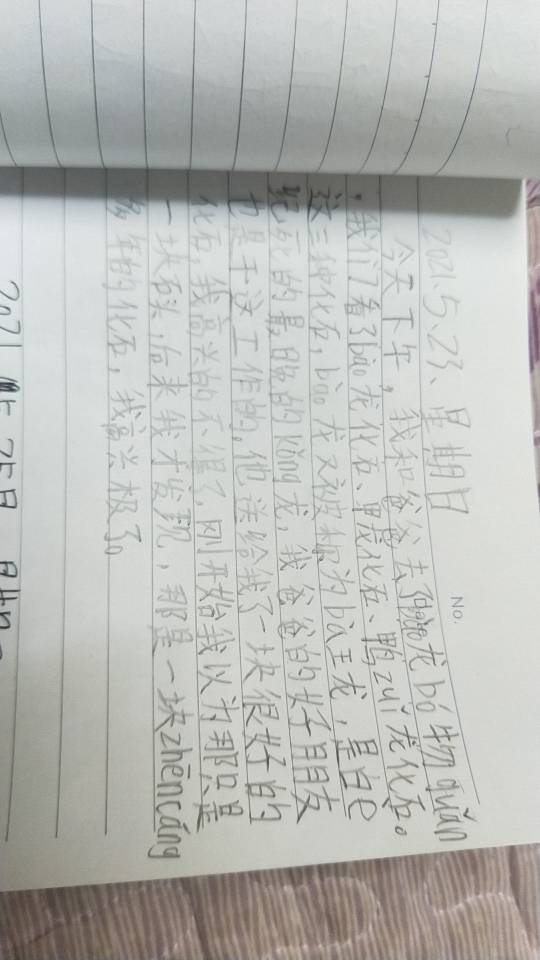 No.
2021.5.23、星期日
今天下午，我和爸爸去龙bó物guǎn
，我们了看了bào龙化石、甲龙化石、鸭zuǐ龙化石。
这三种化石，bào龙又被称为bà王龙，是白e
纪死的最晚的kǒng龙，我爸爸的好朋友
也是干这工作的，他送给我了一块很好的
化石，我高兴的不得了，刚开始我以为那只是
一块石头，后来我才发现，那是一块zhēncáng
多年的化石，我高兴极了。
2021
25日